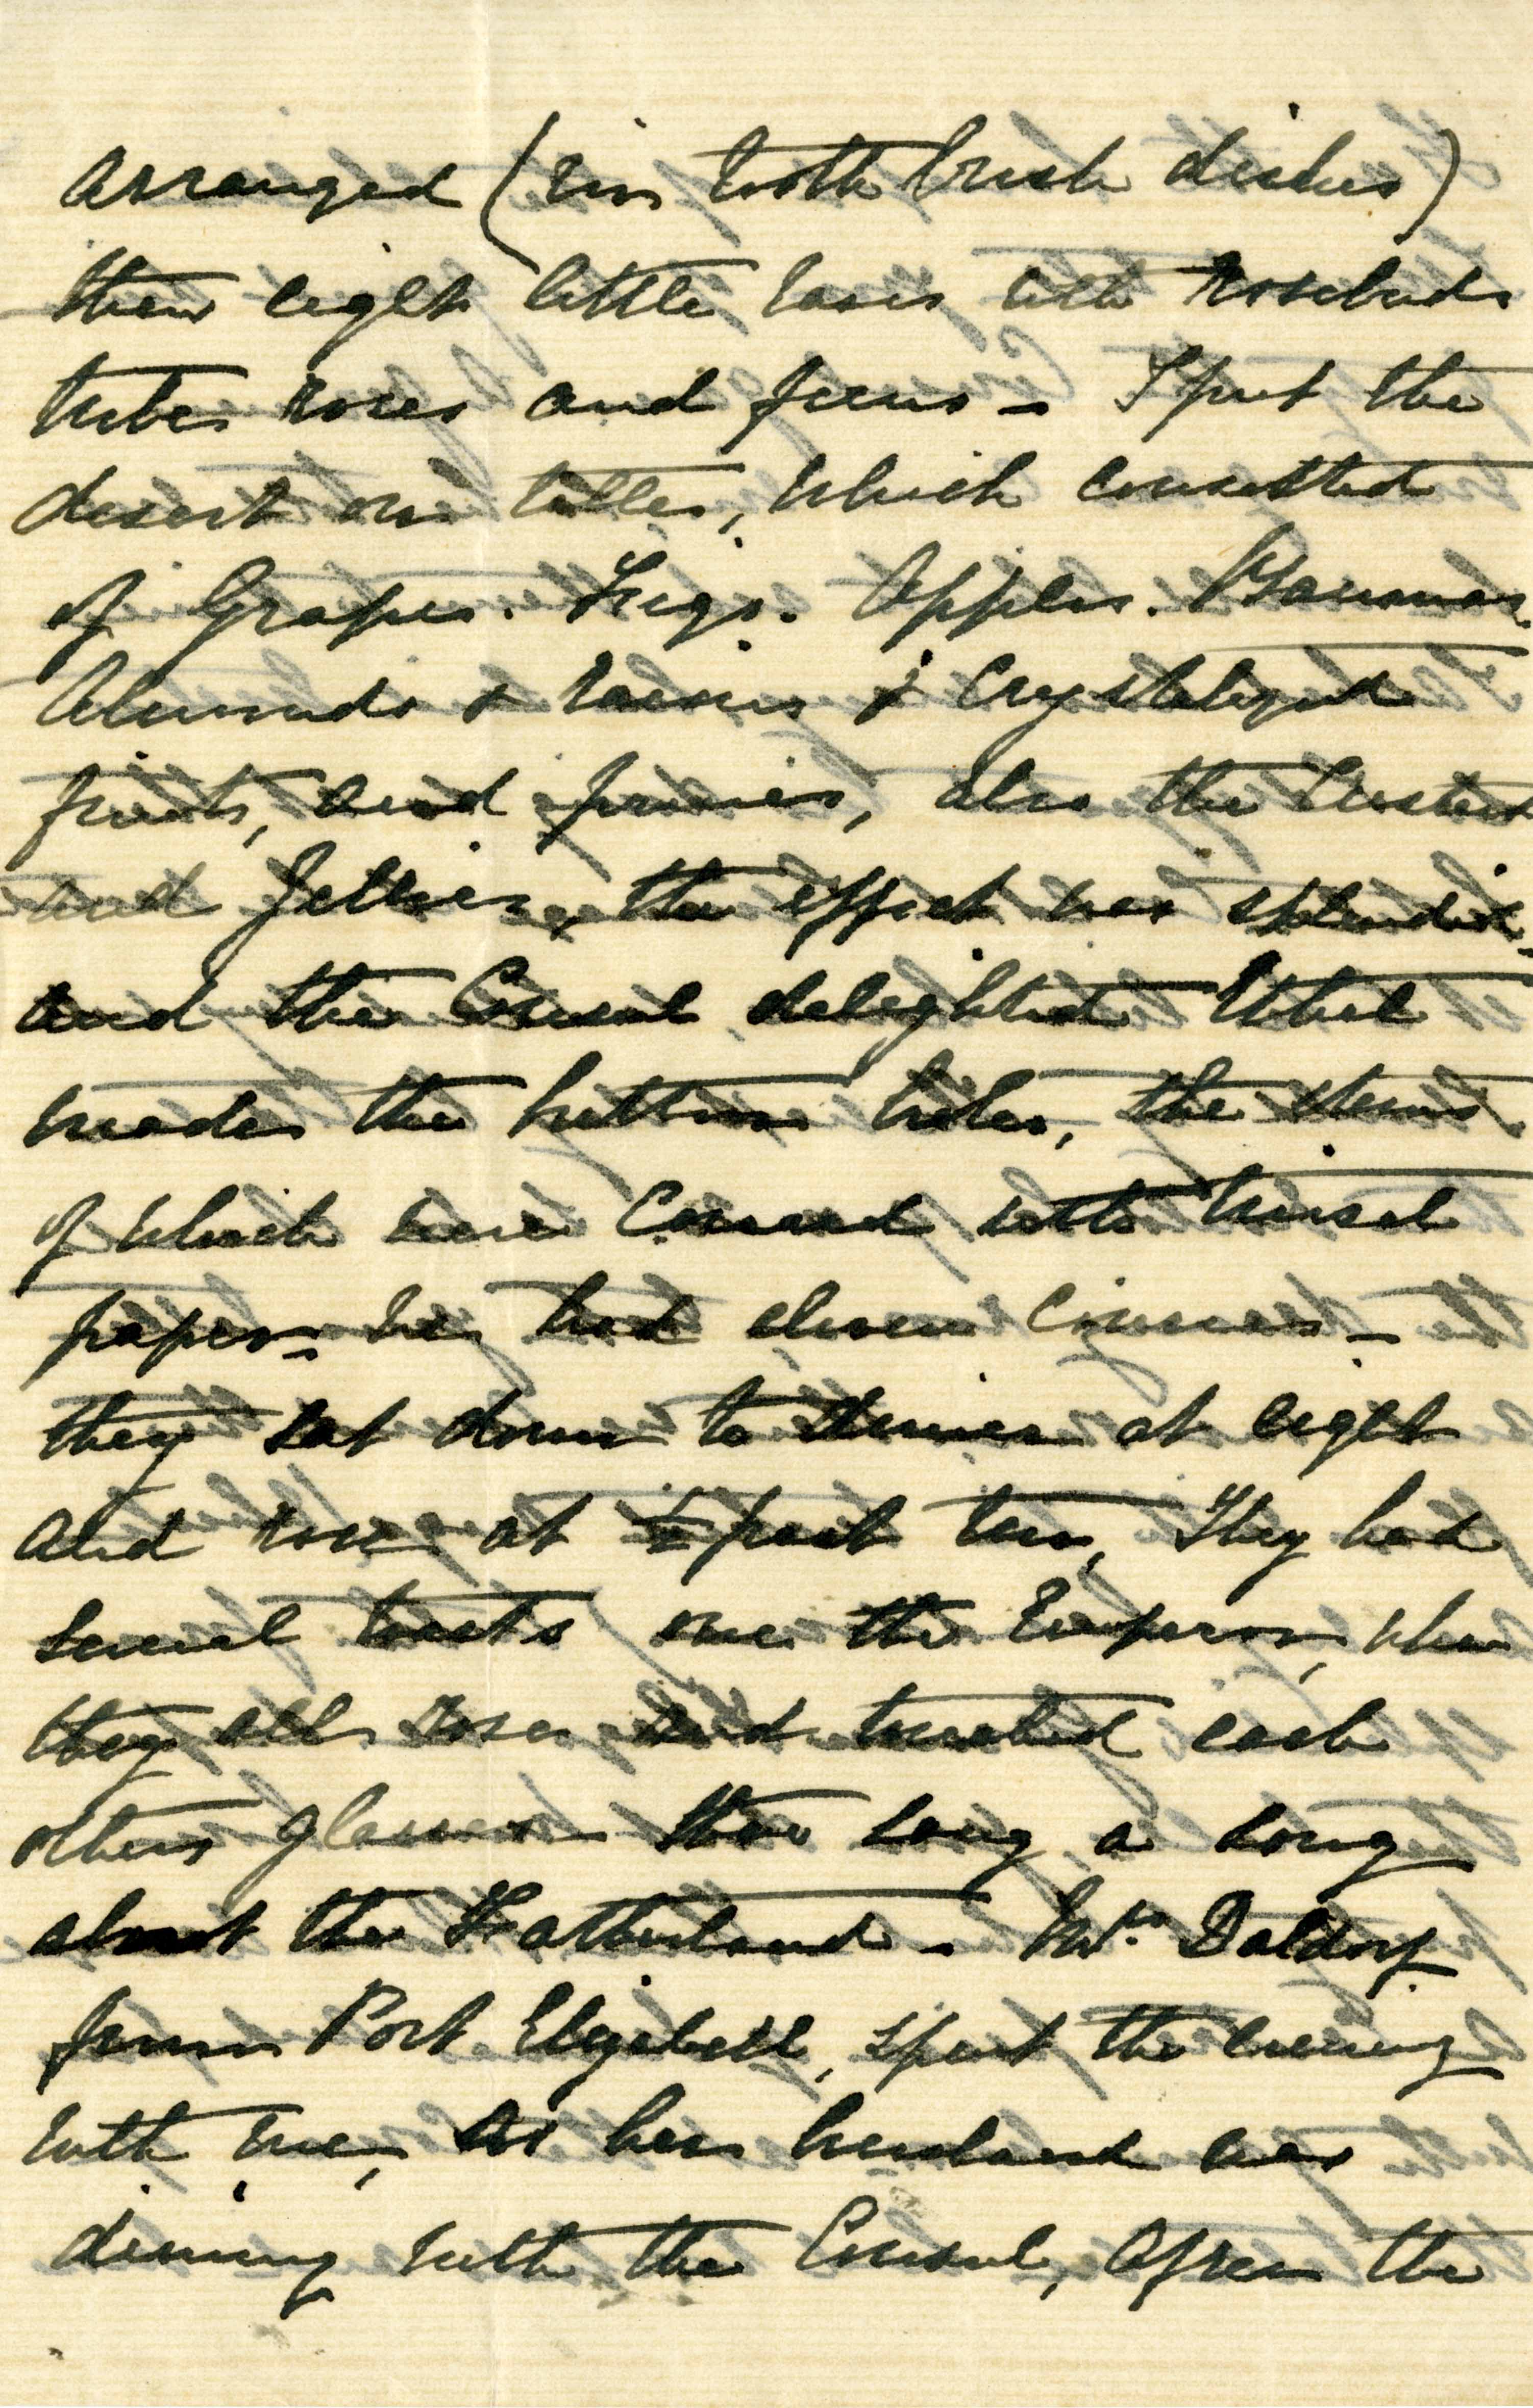 arranged (in tooth brush dishes)
then eight little vases with rosebuds
tube roses and ferns – I put the
desert on table, which consisted
of Grapes. Figs. Apples. Bananas.
Almonds & raisins & Crystalized
fruits, and prunes, also the Custards
and Jellies, the effect was splendid
and the Consul delighted Ethel
made the button holes, the stems
of which were Covered with tinsel
paper – we had eleven Courses –
they sat down to dinner at eight
and rose at ½ past ten, They had
several toasts one the Emperor, when
they all rose and touched each
others glasses then sang a song
about the Fatherland – Mrs Daldorf
from Port Elizabeth, spent the evening
with me, as her husband was
dining with the Consul, After the